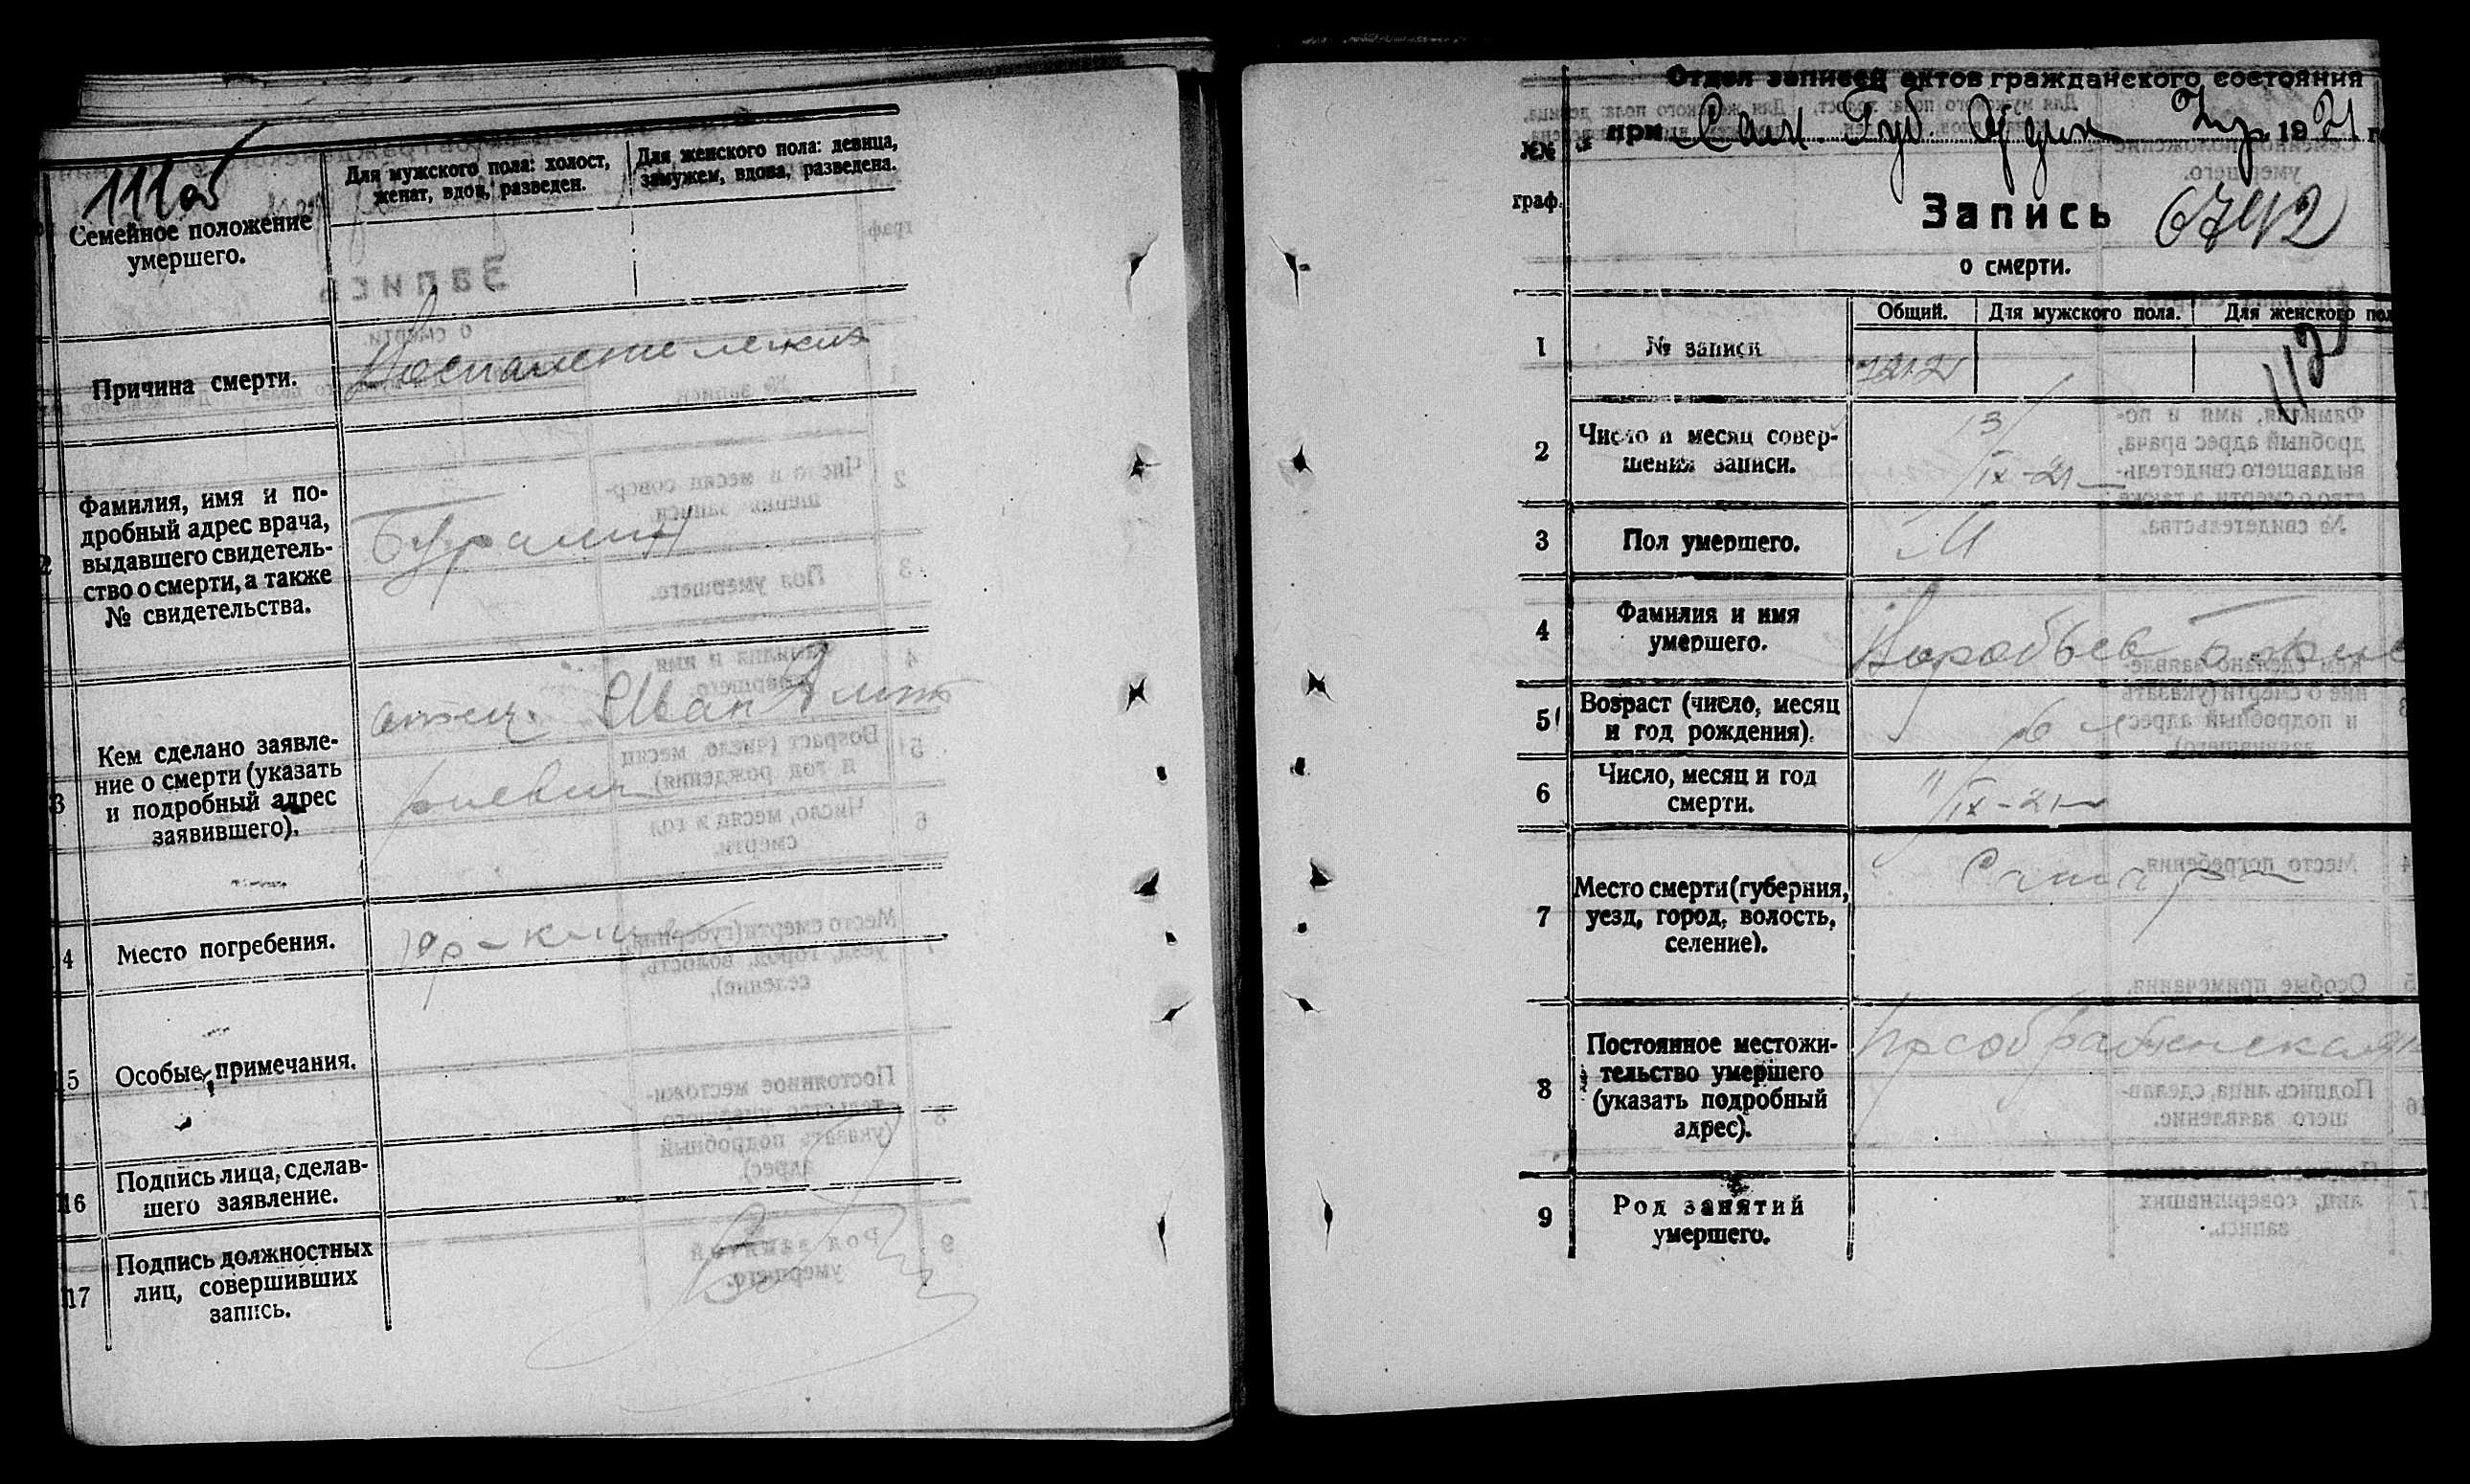 111 об
Для мужского пола: холост,
женат, вдов, разведен.
Для женского пола: девица,
замужем, вдова, разведена.
Семейное положение
умершего.
Причина смерти.
Воспаление легких
2
Фамилия, имя и по-
дробный адрес врача,
выдавшего свидетель-
ство о смерти, а также
№ свидетельства.
3
Кем сделано заявле-
ние о смерти (указать
и подробный адрес
заявившего).
отец. Иван Дмит
риевич
4
Место погребения.
5
Особые примечания.
16
Подпись лица, сделав-
шего заявление.
17
Подпись должностных
лиц, совершивших
запись.
Отдел записей актов гражданского состояния
при Сам. Губ. 1921 г
№№
граф.
Запись 6742
о смерти.
Общий.
Для мужского пола.
Для женского пол
1
№ записи
112
2
Число и месяц совер-
шения записи.
13/
IX-21
3
Пол умершего.
М
4
Фамилия и имя
умершего.
Воробьев
5
Возраст (число, месяц
и год рождения).
6
6
Число, месяц и год
смерти.
11/IX-21
7
Место смерти (губерния,
уезд, город, волость,
селение).
Самара
8
Постоянное местожи-
тельство умершего
(указать подробный
адрес).
Преображенская
9
Род занятий
умершего.